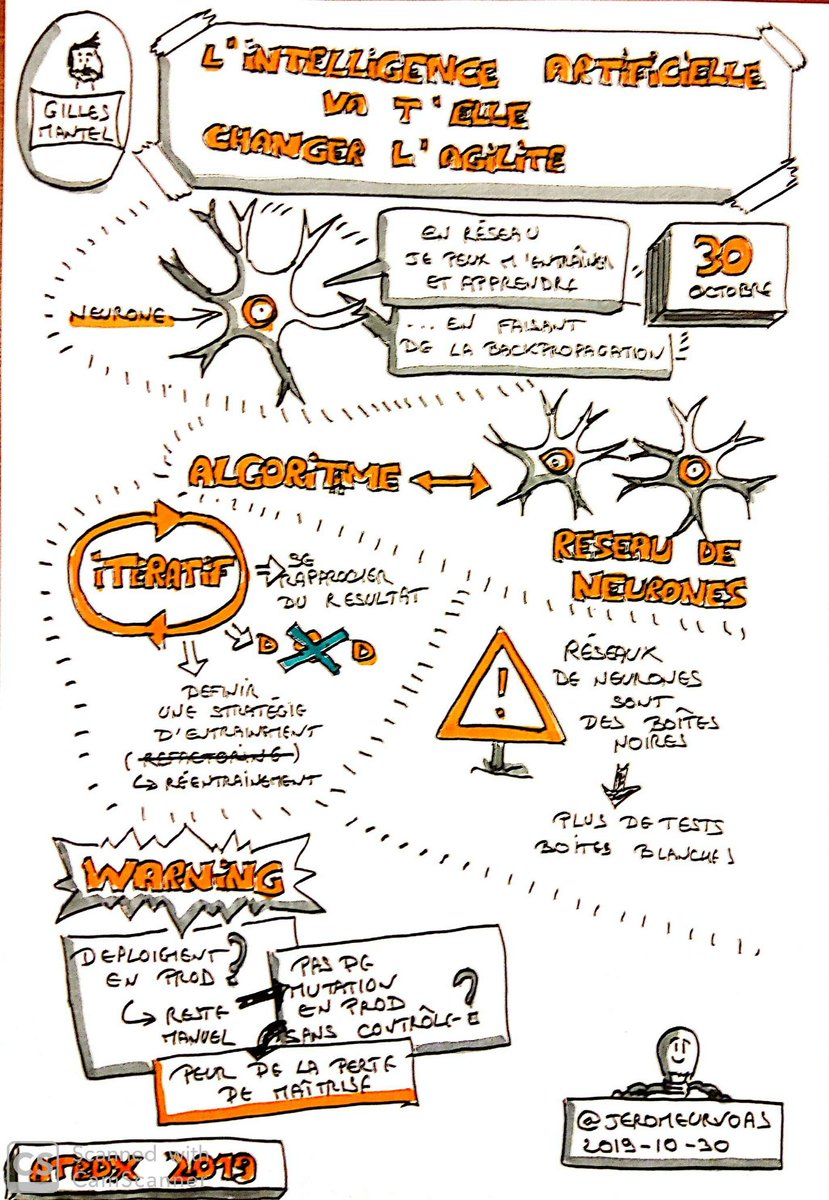 GILLES
MANTEL
L'INTELLIGENCE ARTIFICIELLE
VA T'ELLE
CHANGER L'AGILITE
EN RÉSEAU
JE PEUX M'ENTRAÎNER
ET APPRENDRE
30
OCTOBRE
NEURONE
... EN FAISANT
DE LA BACKPROPAGATION
ALGORITME
RESEAU DE
NEURONES
ITERATIF
SE
RAPPROCHER
DU RESULTAT
D D
DEFINIR
UNE STRATÉGIE
D'ENTRAINEMENT
(REFACTORING)
RÉENTRAÎNEMENT
!
RÉSEAUX
DE NEURONES
SONT
DES BOÎTES
NOIRES
PLUS DE TESTS
BOITES BLANCHES
WARNING
DEPLOIMENT
EN PROD ?
RESTE
MANUEL
PAS DE
MUTATION
EN PROD ?
SANS CONTRÔLE
PEUR DE LA PERTE
DE MAÎTRISE
@JEROMEURVOAS
2019-10-30
ATBDX 2019
CS Scanned with
CamScanner